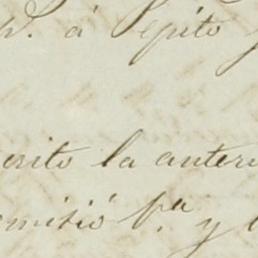 á Pepito y
crito la anteri
omisió pª y